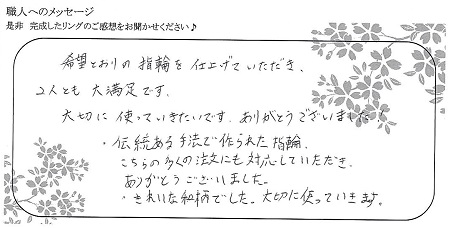 職人へのメッセージ
是非 完成したリングのご感想をお聞かせください♪
希望どおりの指輪を仕上げていただき、
2人とも大満足です。
大切に使っていきたいです。ありがとうございました!
・伝統ある手法で作られた指輪、
こちらの多くの注文にも対応していただき、
ありがとうございました。
・きれいな和柄でした。大切に使っていきます。